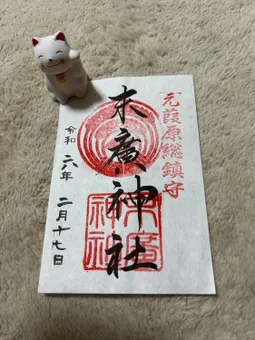 元葭原総鎮守
末廣神社
末廣神社
令和六年二月十七日